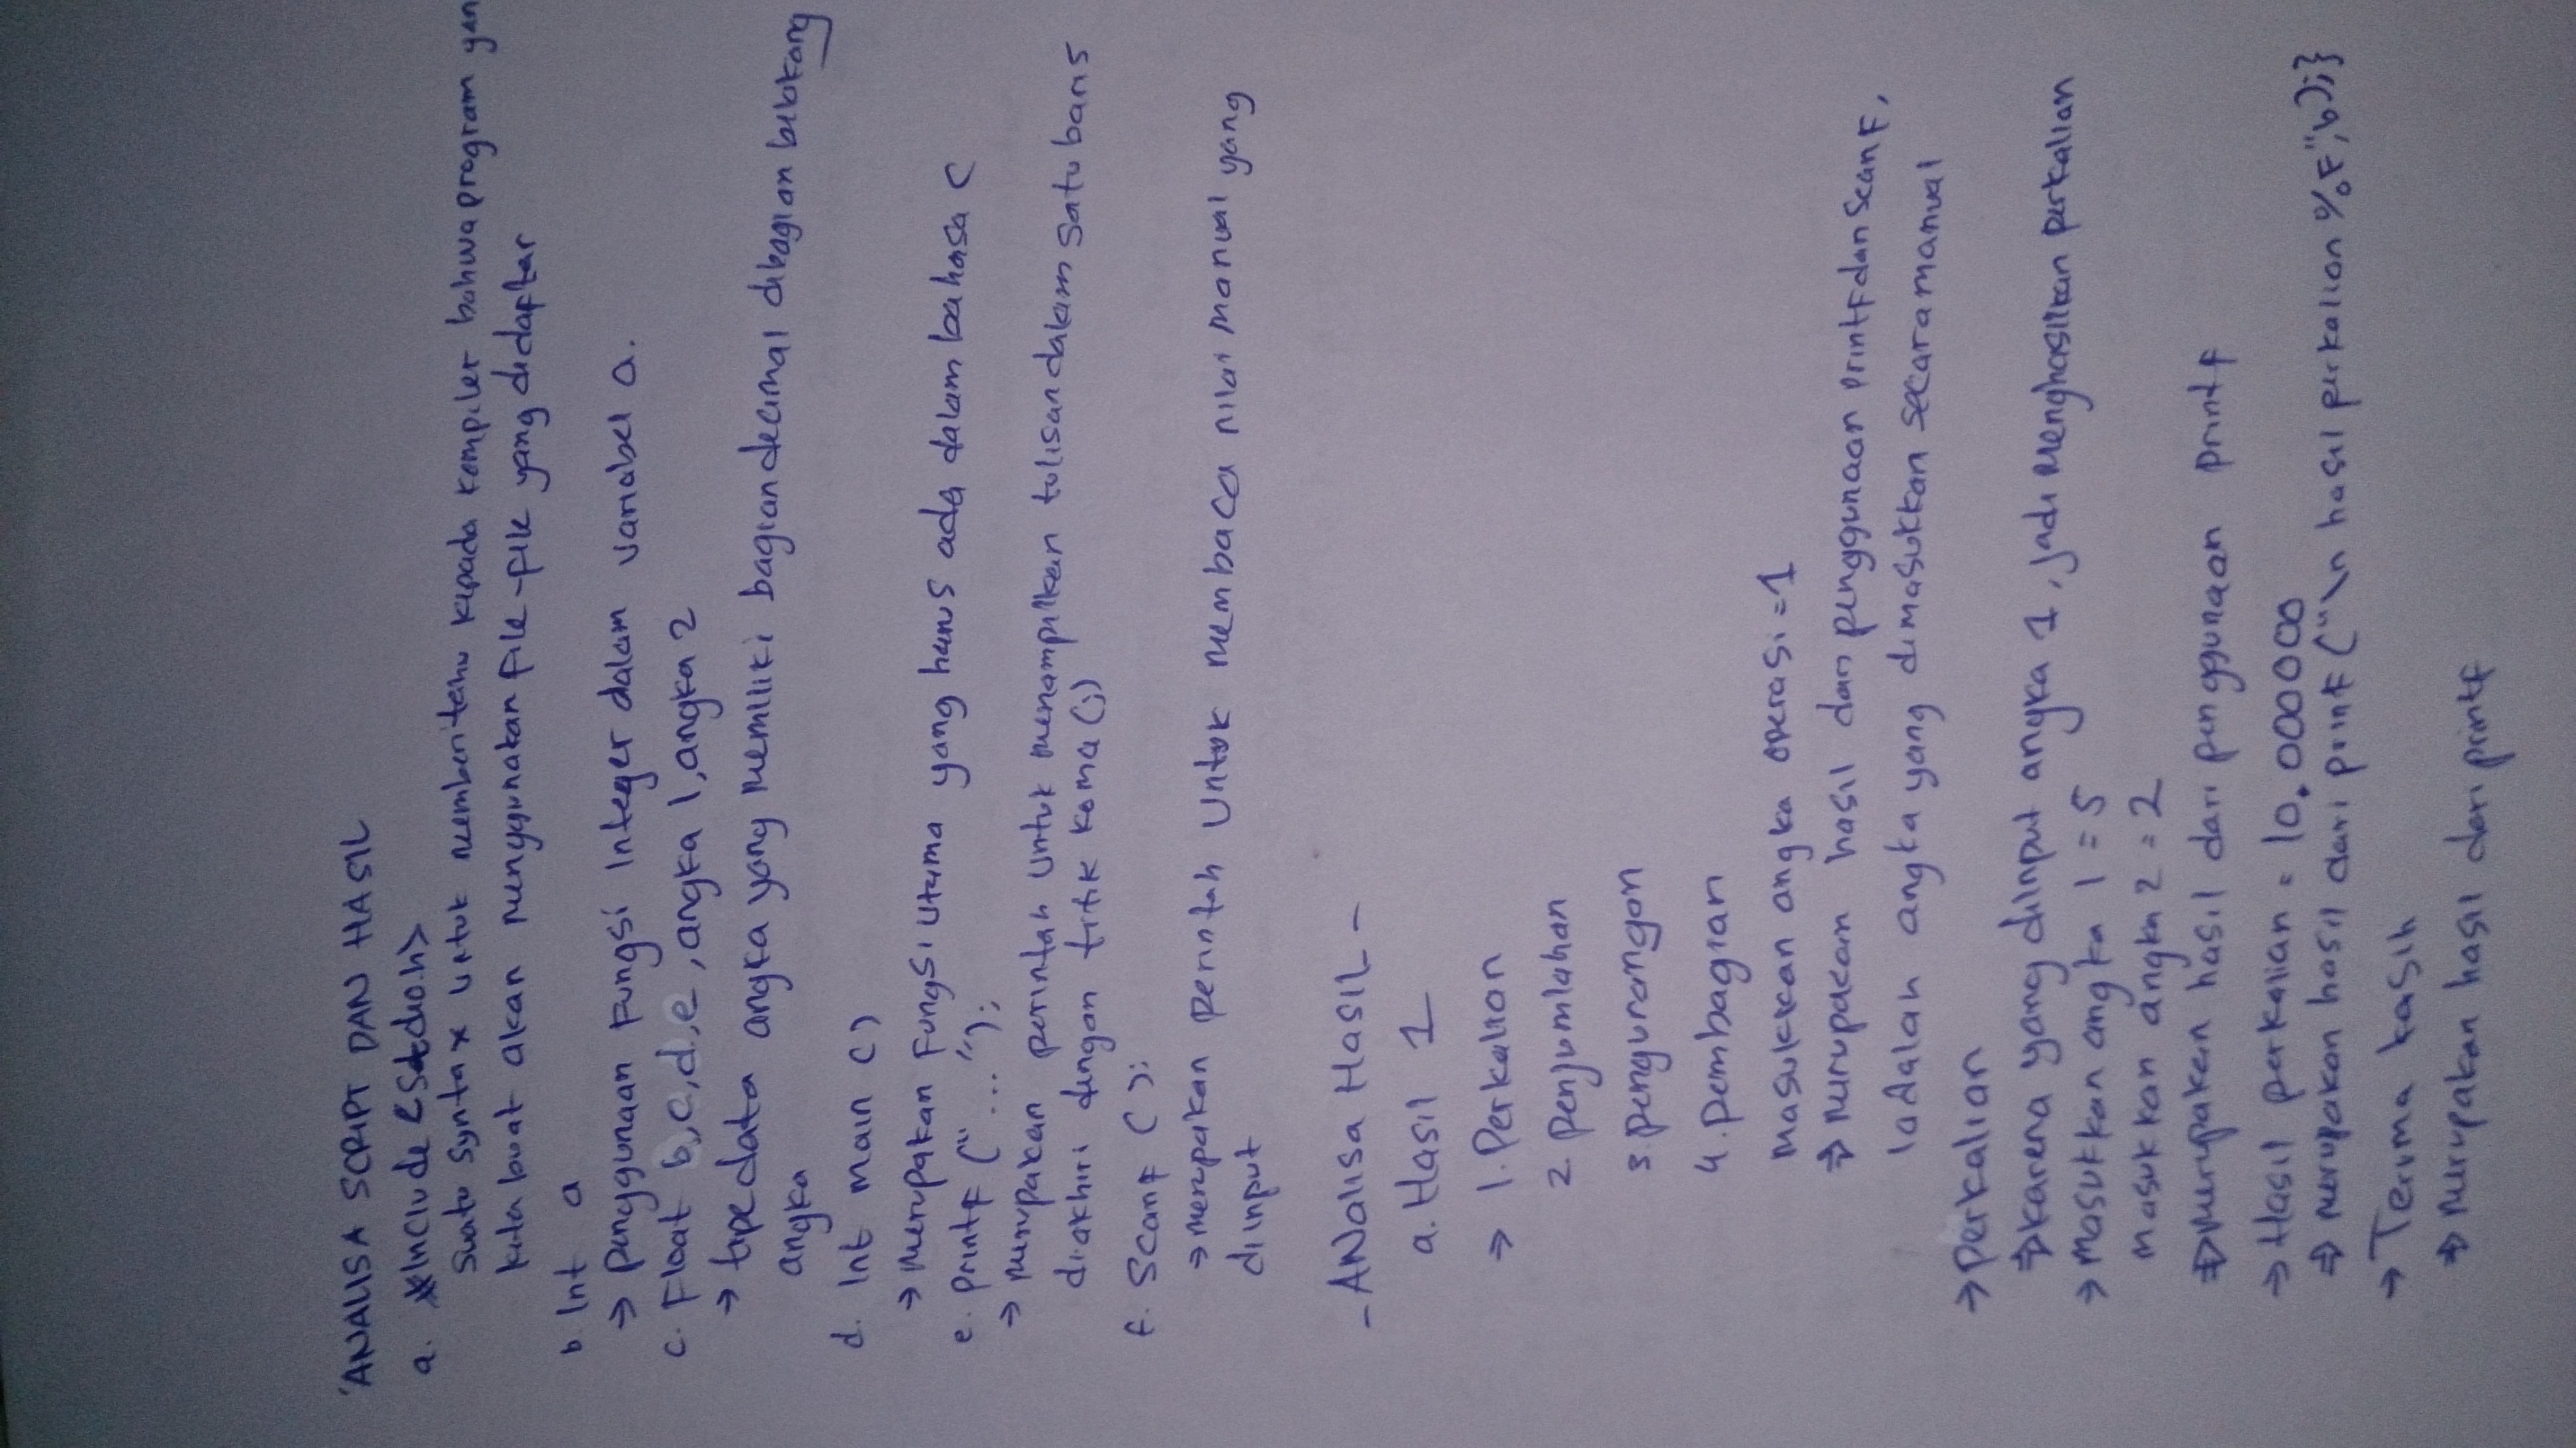 ANALISA SCRIPT DAN HASIL
a. #Include <Stdio.h>
Suatu Syntax untuk memberitahu kepada kompiler bahwa program yan
kita buat akan menggunakan file-file yang didaftar
b. Int a
→ penggunaan Fungsi Integer dalam variabel a.
c. Float b,c,d,e, angka 1, angka 2
→ tipe data angka yang memiliki bagian decimal dibagian belakang
angka
d. Int main ()
→ Merupakan Fungsi utama yang harus ada dalam bahasa C
e. printf ("...");
→ merupakan perintah untuk menampilkan tulisan dalam satu baris
diakhiri dengan titik koma (;)
f. Scanf ();
→ merupakan perintah Untuk membaca nilai manual yang
diinput
- ANalisa HASIL -
a. Hasil 1
→ 1. Perkalian
2. penjumlahan
3. pengurangan
4. pembagian
Masukkan angka operasi = 1
⇒ merupakan hasil dari penggunaan printf dan Scanf,
1 adalah angka yang dimasukkan secara manual
→ perkalian
⇒ karena yang diinput angka 1, jadi menghasilkan perkalian
→ Masukkan angka 1 = 5
Masukkan angka 2 = 2
⇒ merupakan hasil dari penggunaan printf
→ Hasil perkalian = 10.000000
⇒ merupakan hasil dari prinf ("\n hasil perkalian %F",b);}
→ Terima kasih
⇒ merupakan hasil dari printf